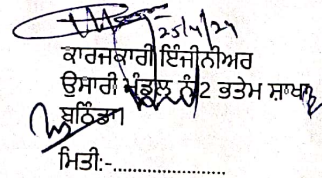 25/4/24
ਕਾਰਜਕਾਰੀ ਇੰਜੀਨੀਅਰ
ਉਸਾਰੀ ਮੰਡਲ ਨੰ2 ਭਤੇਮ ਸ਼ਾਖਾ,
ਬਠਿੰਡਾ।
ਮਿਤੀ:-......................